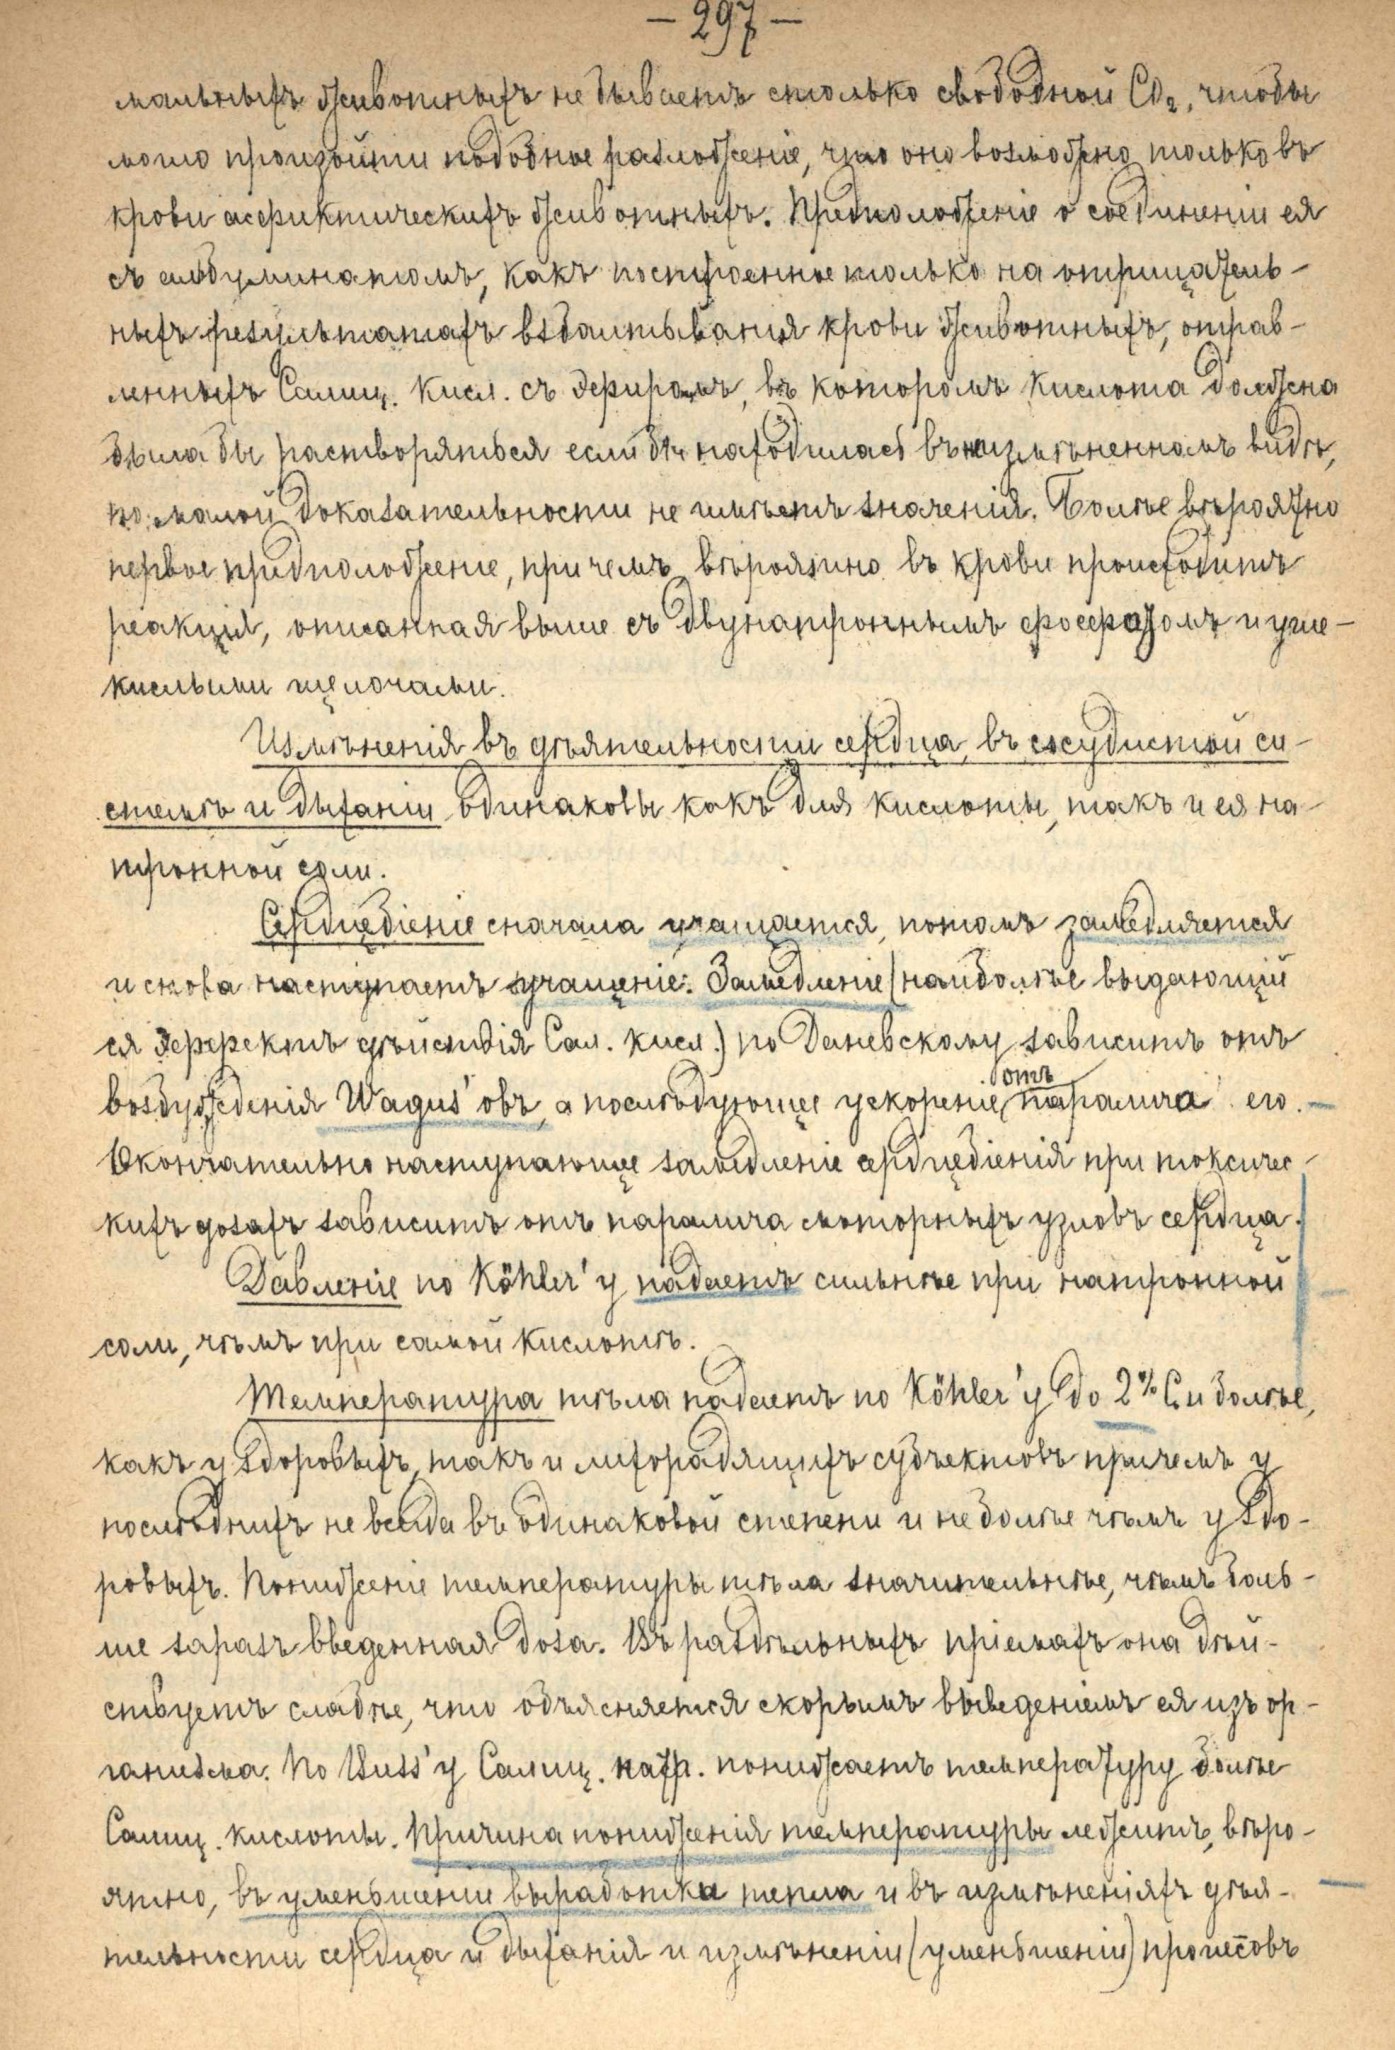 — 297 —
мальныхъ животныхъ не бываетъ столько свободной CO₂, чтобы
могло произойти подобное разложеніе, что оно возможно только въ
крови асфиктическихъ животныхъ. Предположеніе о соединеніи ея
съ альбуминатомъ, какъ построенное только на отрицатель-
ныхъ результатахъ взбалтыванія крови животныхъ, отрав-
ленныхъ Салиц. кисл. съ эфиромъ, въ которомъ кислота должна
была бы растворяться если бы находилась въ неизмѣненномъ видѣ,
по малой доказательности не имѣетъ значенія. Болѣе вѣроятно
первое предположеніе, причемъ вѣроятно въ крови происходитъ
реакція, описанная выше съ двунатроннымъ фосфатомъ и угле-
кислыми щелочами.
Измѣненія въ дѣятельности сердца, въ сосудистой си-
стемѣ и дыханіи одинаковы какъ для кислоты, такъ и ея на-
тронной соли.
Сердцебіеніе сначала учащается, потомъ замедляется
и снова наступаетъ учащеніе. Замедленіе (наиболѣе выдающій
ся эффектъ дѣйствія Сал. кисл.) по Даневскому зависитъ отъ
возбужденія Wagus'овъ, а послѣдующее ускореніе отъ паралича его. —
Окончательно наступающее замедленіе сердцебіенія при токсичес-
кихъ дозахъ зависитъ отъ паралича моторныхъ узловъ сердца.
Давленіе по Köhler'у падаетъ сильнѣе при натронной
соли, чѣмъ при самой кислотѣ.
Температура тѣла падаетъ по Köhler'у до 2% C. и болѣе,
какъ у здоровыхъ, такъ и лихорадящихъ субъектовъ причемъ у
послѣднихъ не всегда въ одинаковой степени и не болѣе чѣмъ у здо-
ровыхъ. Пониженіе температуры тѣла значительнѣе, чѣмъ боль-
ше заразъ введенная доза. Въ раздѣльныхъ пріемахъ она дѣй-
ствуетъ слабѣе, что объясняется скорымъ выведеніемъ ея изъ ор-
ганизма. По Buss'у Салиц. натр. понижаетъ температуру болѣе
Салиц. кислоты. Причина пониженія температуры лежитъ, вѣро-
ятно, въ уменьшеніи выработки тепла и въ измѣненіяхъ дѣя-
тельности сердца и дыханія и измѣненіи (уменьшеніи) процессовъ